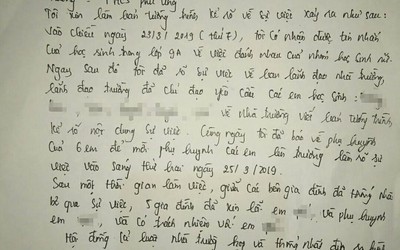 THCS phù ủng
Tôi xin làm bản tường trình kể rõ về sự việc xảy ra như sau:
Vào chiều ngày 23/3/2019 (thứ 7), tôi có nhận được tin nhắn
của học sinh trong lớp 9A về việc đánh nhau của nhóm học sinh nữ.
Ngay sau đó tôi đã số sự việc về ban lãnh đạo nhà trường,
lãnh đạo trường đã chỉ đạo yêu cầu các em học sinh:
về nhà trường viết bản tường trình,
kể rõ nội dung sự việc. Cùng ngày tôi đã báo về phụ huynh
của 6 em để mời phụ huynh các em lên trường làm rõ sự
việc vào sáng thứ hai ngày 25/3/2019.
Sau một thời gian làm việc, giữa các bên gia đình đã thống nhất
bỏ qua sự việc, 5 gia đình đã xin lỗi em và phụ huynh
em và có trách nhiệm với em
Hội đồng kỉ luật nhà trường họp và thống nhất